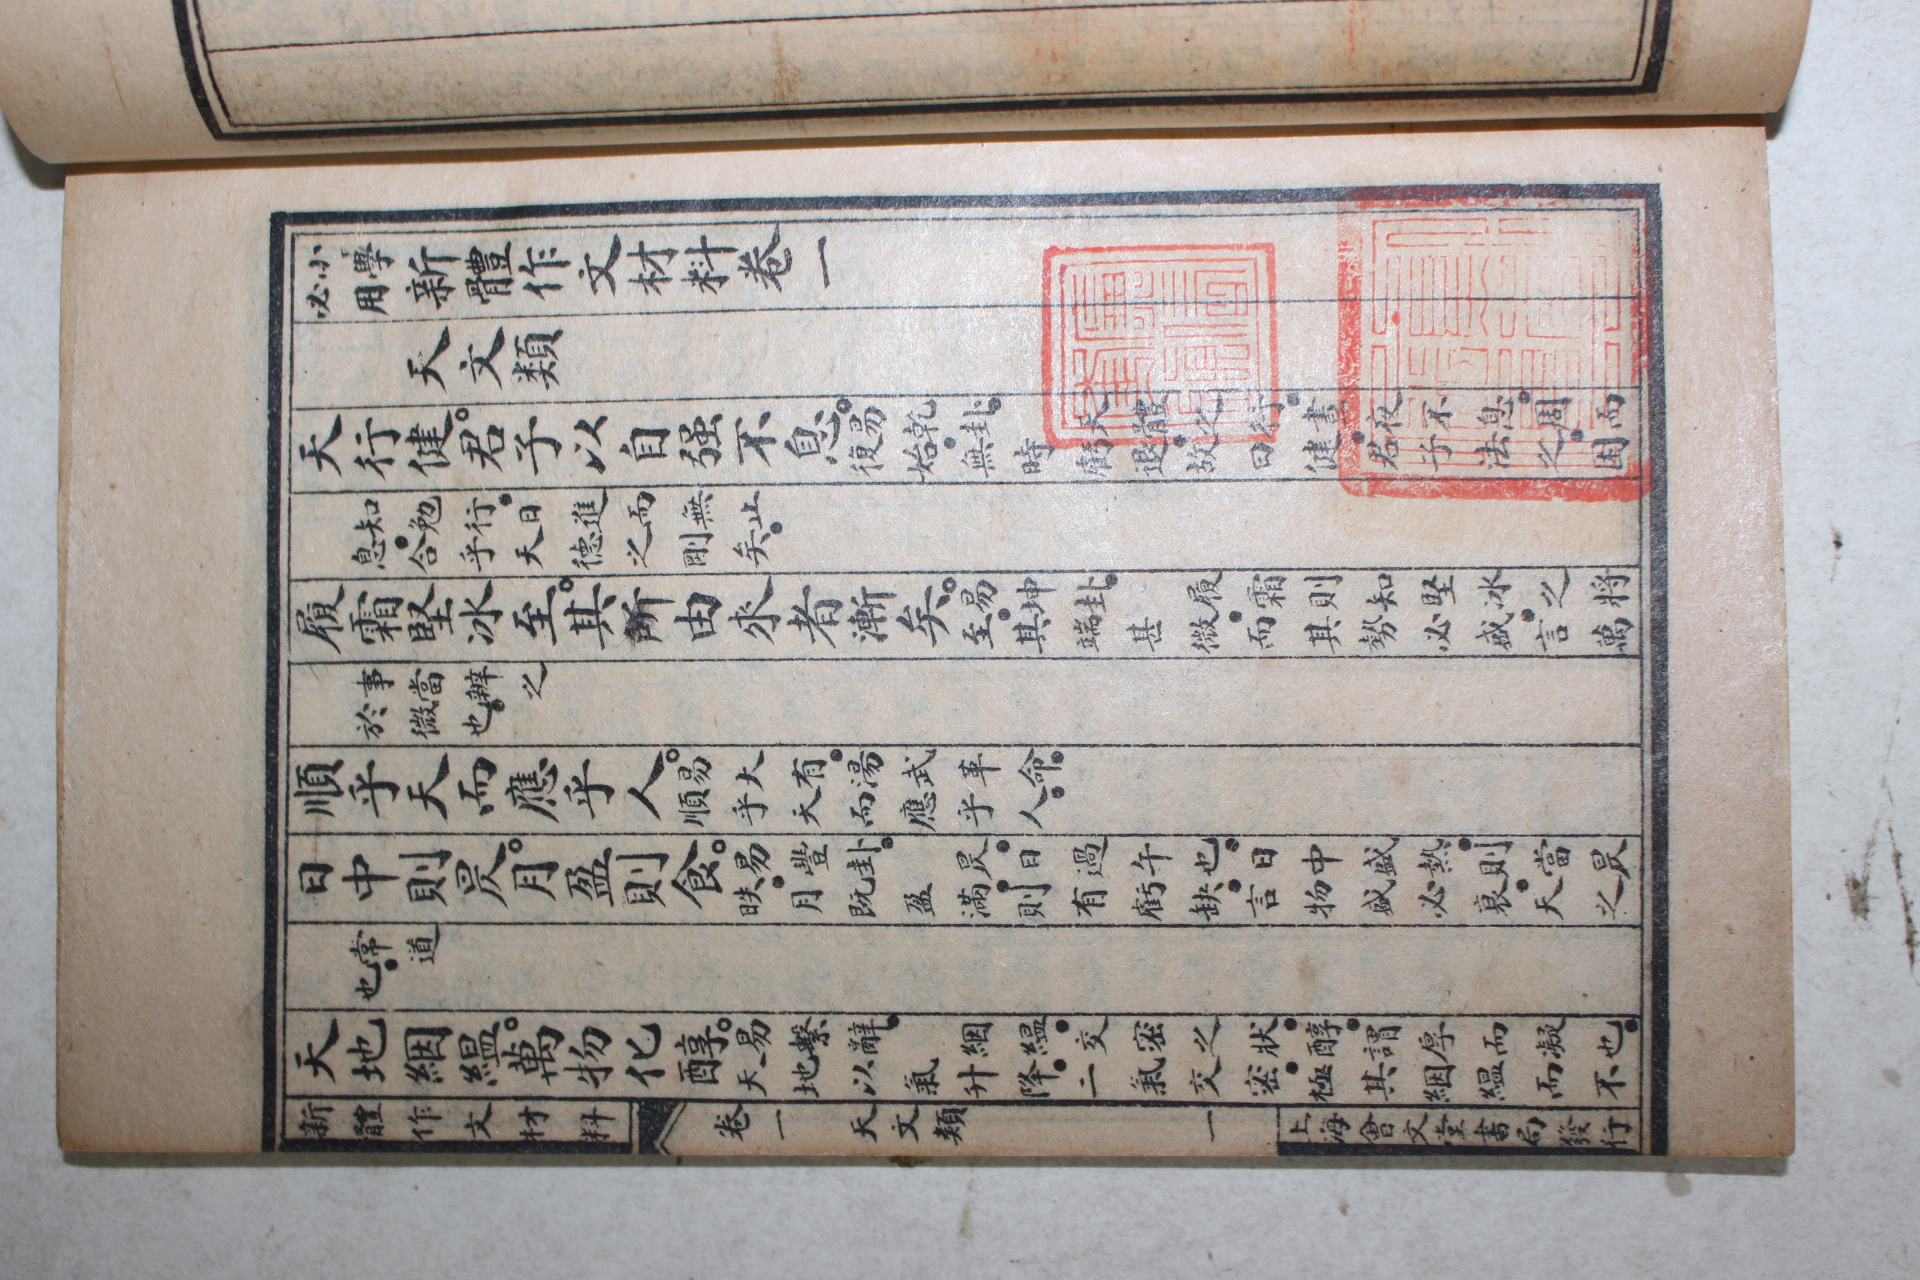 小學必用新體作文材料卷一
天文類
天行健。君子以自强不息。易乾卦。天體之行。晝夜不息。周而
復始。無時虧退。故曰健。君子法之。困
知勉行。日進而無止
息。合乎天德之剛矣
履霜堅冰至。其所由來者漸矣。易坤卦。履霜則知堅冰之將
至。其端甚微。而其勢必盛。言萬
事當辨之
於微也。
順乎天而應乎人。易大有。湯武革命。
順乎天而應乎人。
日中則昃。月盈則食。易豐卦。昃。日過午也。日中盛熱。則當昃
昳。月既盈滿。則有虧缺。言物盛必衰。天之
常道
也。
天地絪縕。萬物化醇。易繫辭。絪縕。交密之狀。醇。謂厚而凝也。
天地以氣升降。二氣交密。極其絪縕而不
新體作文材料 卷一 天文類 一 上海會文堂書局發行